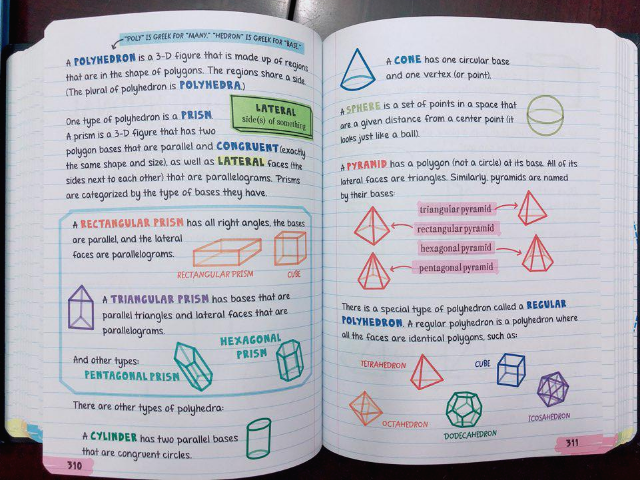 "POLY" IS GREEK FOR "MANY." "HEDRON" IS GREEK FOR "BASE."
A POLYHEDRON is a 3-D figure that is made up of regions
that are in the shape of polygons. The regions share a side.
(The plural of polyhedron is POLYHEDRA.)
LATERAL
side(s) of something
One type of polyhedron is a PRISM.
A prism is a 3-D figure that has two
polygon bases that are parallel and CONGRUENT (exactly
the same shape and size), as well as LATERAL faces (the
sides next to each other) that are parallelograms. Prisms
are categorized by the type of bases they have.
A RECTANGULAR PRISM has all right angles, the bases
are parallel, and the lateral
faces are parallelograms.
RECTANGULAR PRISM
CUBE
A TRIANGULAR PRISM has bases that are
parallel triangles and lateral faces that are
parallelograms.
And other types:
PENTAGONAL PRISM
HEXAGONAL
PRISM
There are other types of polyhedra:
A CYLINDER has two parallel bases
that are congruent circles.
310
A CONE has one circular base
and one vertex (or point).
A SPHERE is a set of points in a space that
are a given distance from a center point (it
looks just like a ball).
A PYRAMID has a polygon (not a circle) at its base. All of its
lateral faces are triangles. Similarly, pyramids are named
by their bases:
triangular pyramid
rectangular pyramid
hexagonal pyramid
pentagonal pyramid
There is a special type of polyhedron called a REGULAR
POLYHEDRON. A regular polyhedron is a polyhedron where
all the faces are identical polygons, such as:
TETRAHEDRON
CUBE
OCTAHEDRON
DODECAHEDRON
ICOSAHEDRON
311